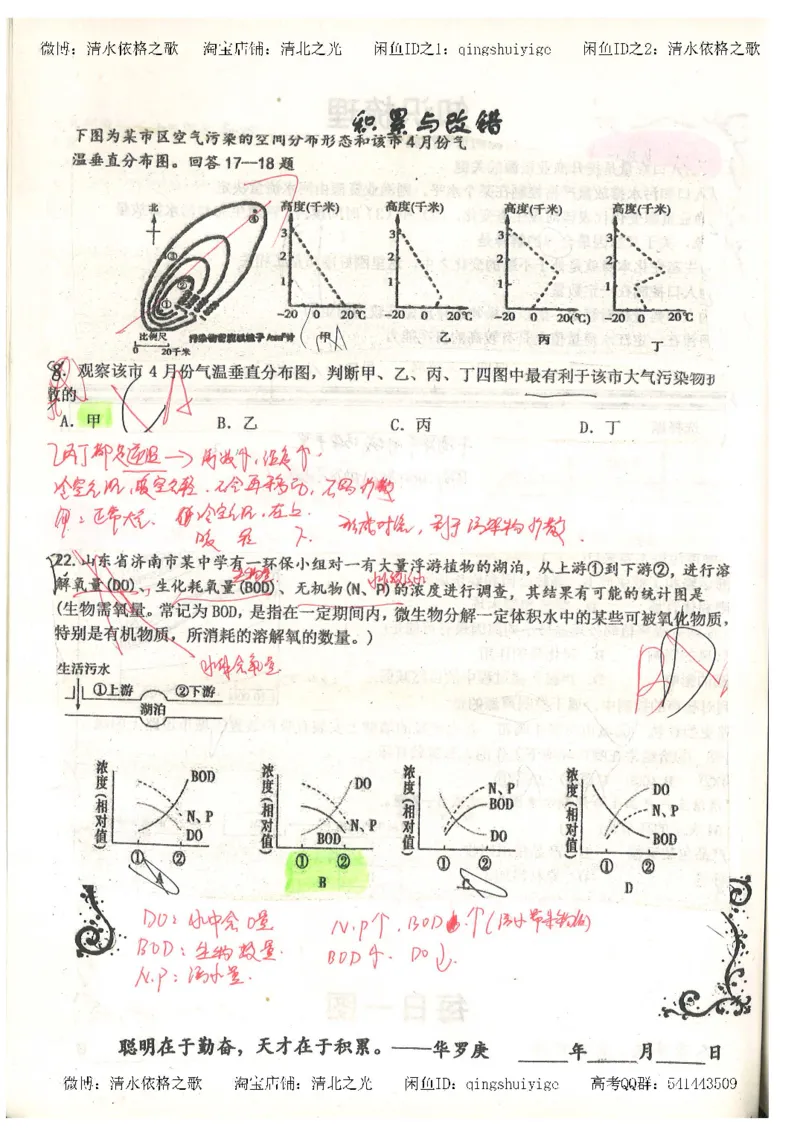 微博：清水依格之歌 淘宝店铺：清北之光 闲鱼ID之1：qingshuiyige 闲鱼ID之2：清水依格之歌
积累与改错
下图为某市区空气污染的空间分布形态和该市4月份气
温垂直分布图。回答17—18题
北
④
③
②
①
比例尺
0 20千米
高度(千米)
3
2
1
-20 0 20℃
甲
高度(千米)
3
2
1
-20 0 20℃
乙
高度(千米)
3
2
1
-20 0 20(℃)
丙
高度(千米)
3
2
1
-20 0 20℃
丁
8. 观察该市 4 月份气温垂直分布图，判断甲、乙、丙、丁四图中最有利于该市大气污染物扩
散的
A. 甲 B. 乙 C. 丙 D. 丁
乙丙丁都是逆温→
冷空气沉，暖空气轻，不会再移动，不易扩散
甲：正常大气 冷空气沉，在上
暖 轻 下. 形成对流，利于污染物扩散.
22. 山东省济南市某中学有一环保小组对一有大量浮游植物的湖泊，从上游①到下游②，进行溶
解氧量(DO)、生化耗氧量(BOD)、无机物(N、P)的浓度进行调查，其结果有可能的统计图是
(生物需氧量。常记为 BOD，是指在一定期间内，微生物分解一定体积水中的某些可被氧化物质，
特别是有机物质，所消耗的溶解氧的数量。)
水体含氧量
生活污水
①上游 ②下游
湖泊
浓度(相对值)
BOD
N、P
DO
① ②
A
浓度(相对值)
DO
N、P
BOD
① ②
B
浓度(相对值)
N、P
BOD
DO
① ②
C
浓度(相对值)
DO
N、P
BOD
① ②
D
DO：水中含O量 N.P↑. BOD↑(污水带来物)
BOD：生物数量. BOD↑. DO↓.
N.P：污水量.
聪明在于勤奋，天才在于积累。——华罗庚 ____年____月____日
微博：清水依格之歌 淘宝店铺：清北之光 闲鱼ID：qingshuiyige 高考QQ群：541443509